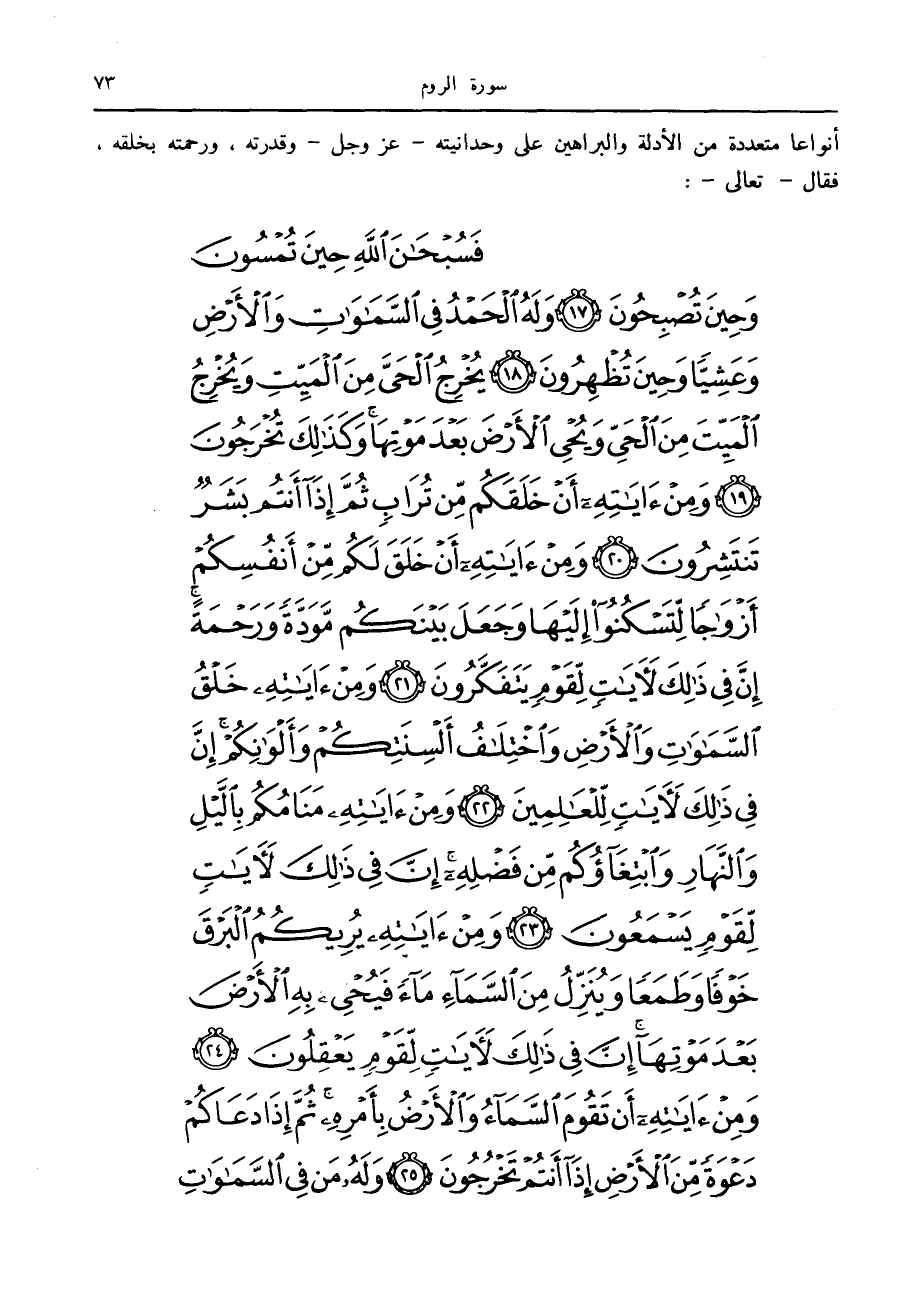 سورة الروم ٧٣
أنواعا متعددة من الأدلة والبراهين على وحدانيته - عز وجل - وقدرته ، ورحمته بخلقه ،
فقال - تعالى - :
فَسُبْحَـٰنَ ٱللَّهِ حِينَ تُمْسُونَ
وَحِينَ تُصْبِحُونَ ١٧ وَلَهُ ٱلْحَمْدُ فِى ٱلسَّمَـٰوَٰتِ وَٱلْأَرْضِ
وَعَشِيًّا وَحِينَ تُظْهِرُونَ ١٨ يُخْرِجُ ٱلْحَىَّ مِنَ ٱلْمَيِّتِ وَيُخْرِجُ
ٱلْمَيِّتَ مِنَ ٱلْحَىِّ وَيُحْىِ ٱلْأَرْضَ بَعْدَ مَوْتِهَا ۚ وَكَذَٰلِكَ تُخْرَجُونَ
١٩ وَمِنْ ءَايَـٰتِهِۦٓ أَنْ خَلَقَكُم مِّن تُرَابٍ ثُمَّ إِذَآ أَنتُم بَشَرٌ
تَنتَشِرُونَ ٢٠ وَمِنْ ءَايَـٰتِهِۦٓ أَنْ خَلَقَ لَكُم مِّنْ أَنفُسِكُمْ
أَزْوَٰجًا لِّتَسْكُنُوٓا۟ إِلَيْهَا وَجَعَلَ بَيْنَكُم مَّوَدَّةً وَرَحْمَةً ۚ
إِنَّ فِى ذَٰلِكَ لَـَٔايَـٰتٍ لِّقَوْمٍ يَتَفَكَّرُونَ ٢١ وَمِنْ ءَايَـٰتِهِۦ خَلْقُ
ٱلسَّمَـٰوَٰتِ وَٱلْأَرْضِ وَٱخْتِلَـٰفُ أَلْسِنَتِكُمْ وَأَلْوَٰنِكُمْ ۚ إِنَّ
فِى ذَٰلِكَ لَـَٔايَـٰتٍ لِّلْعَـٰلِمِينَ ٢٢ وَمِنْ ءَايَـٰتِهِۦ مَنَامُكُم بِٱلَّيْلِ
وَٱلنَّهَارِ وَٱبْتِغَآؤُكُم مِّن فَضْلِهِۦٓ ۚ إِنَّ فِى ذَٰلِكَ لَـَٔايَـٰتٍ
لِّقَوْمٍ يَسْمَعُونَ ٢٣ وَمِنْ ءَايَـٰتِهِۦ يُرِيكُمُ ٱلْبَرْقَ
خَوْفًا وَطَمَعًا وَيُنَزِّلُ مِنَ ٱلسَّمَآءِ مَآءً فَيُحْىِۦ بِهِ ٱلْأَرْضَ
بَعْدَ مَوْتِهَآ ۚ إِنَّ فِى ذَٰلِكَ لَـَٔايَـٰتٍ لِّقَوْمٍ يَعْقِلُونَ ٢٤
وَمِنْ ءَايَـٰتِهِۦٓ أَن تَقُومَ ٱلسَّمَآءُ وَٱلْأَرْضُ بِأَمْرِهِۦ ۚ ثُمَّ إِذَا دَعَاكُمْ
دَعْوَةً مِّنَ ٱلْأَرْضِ إِذَآ أَنتُمْ تَخْرُجُونَ ٢٥ وَلَهُۥ مَن فِى ٱلسَّمَـٰوَٰتِ